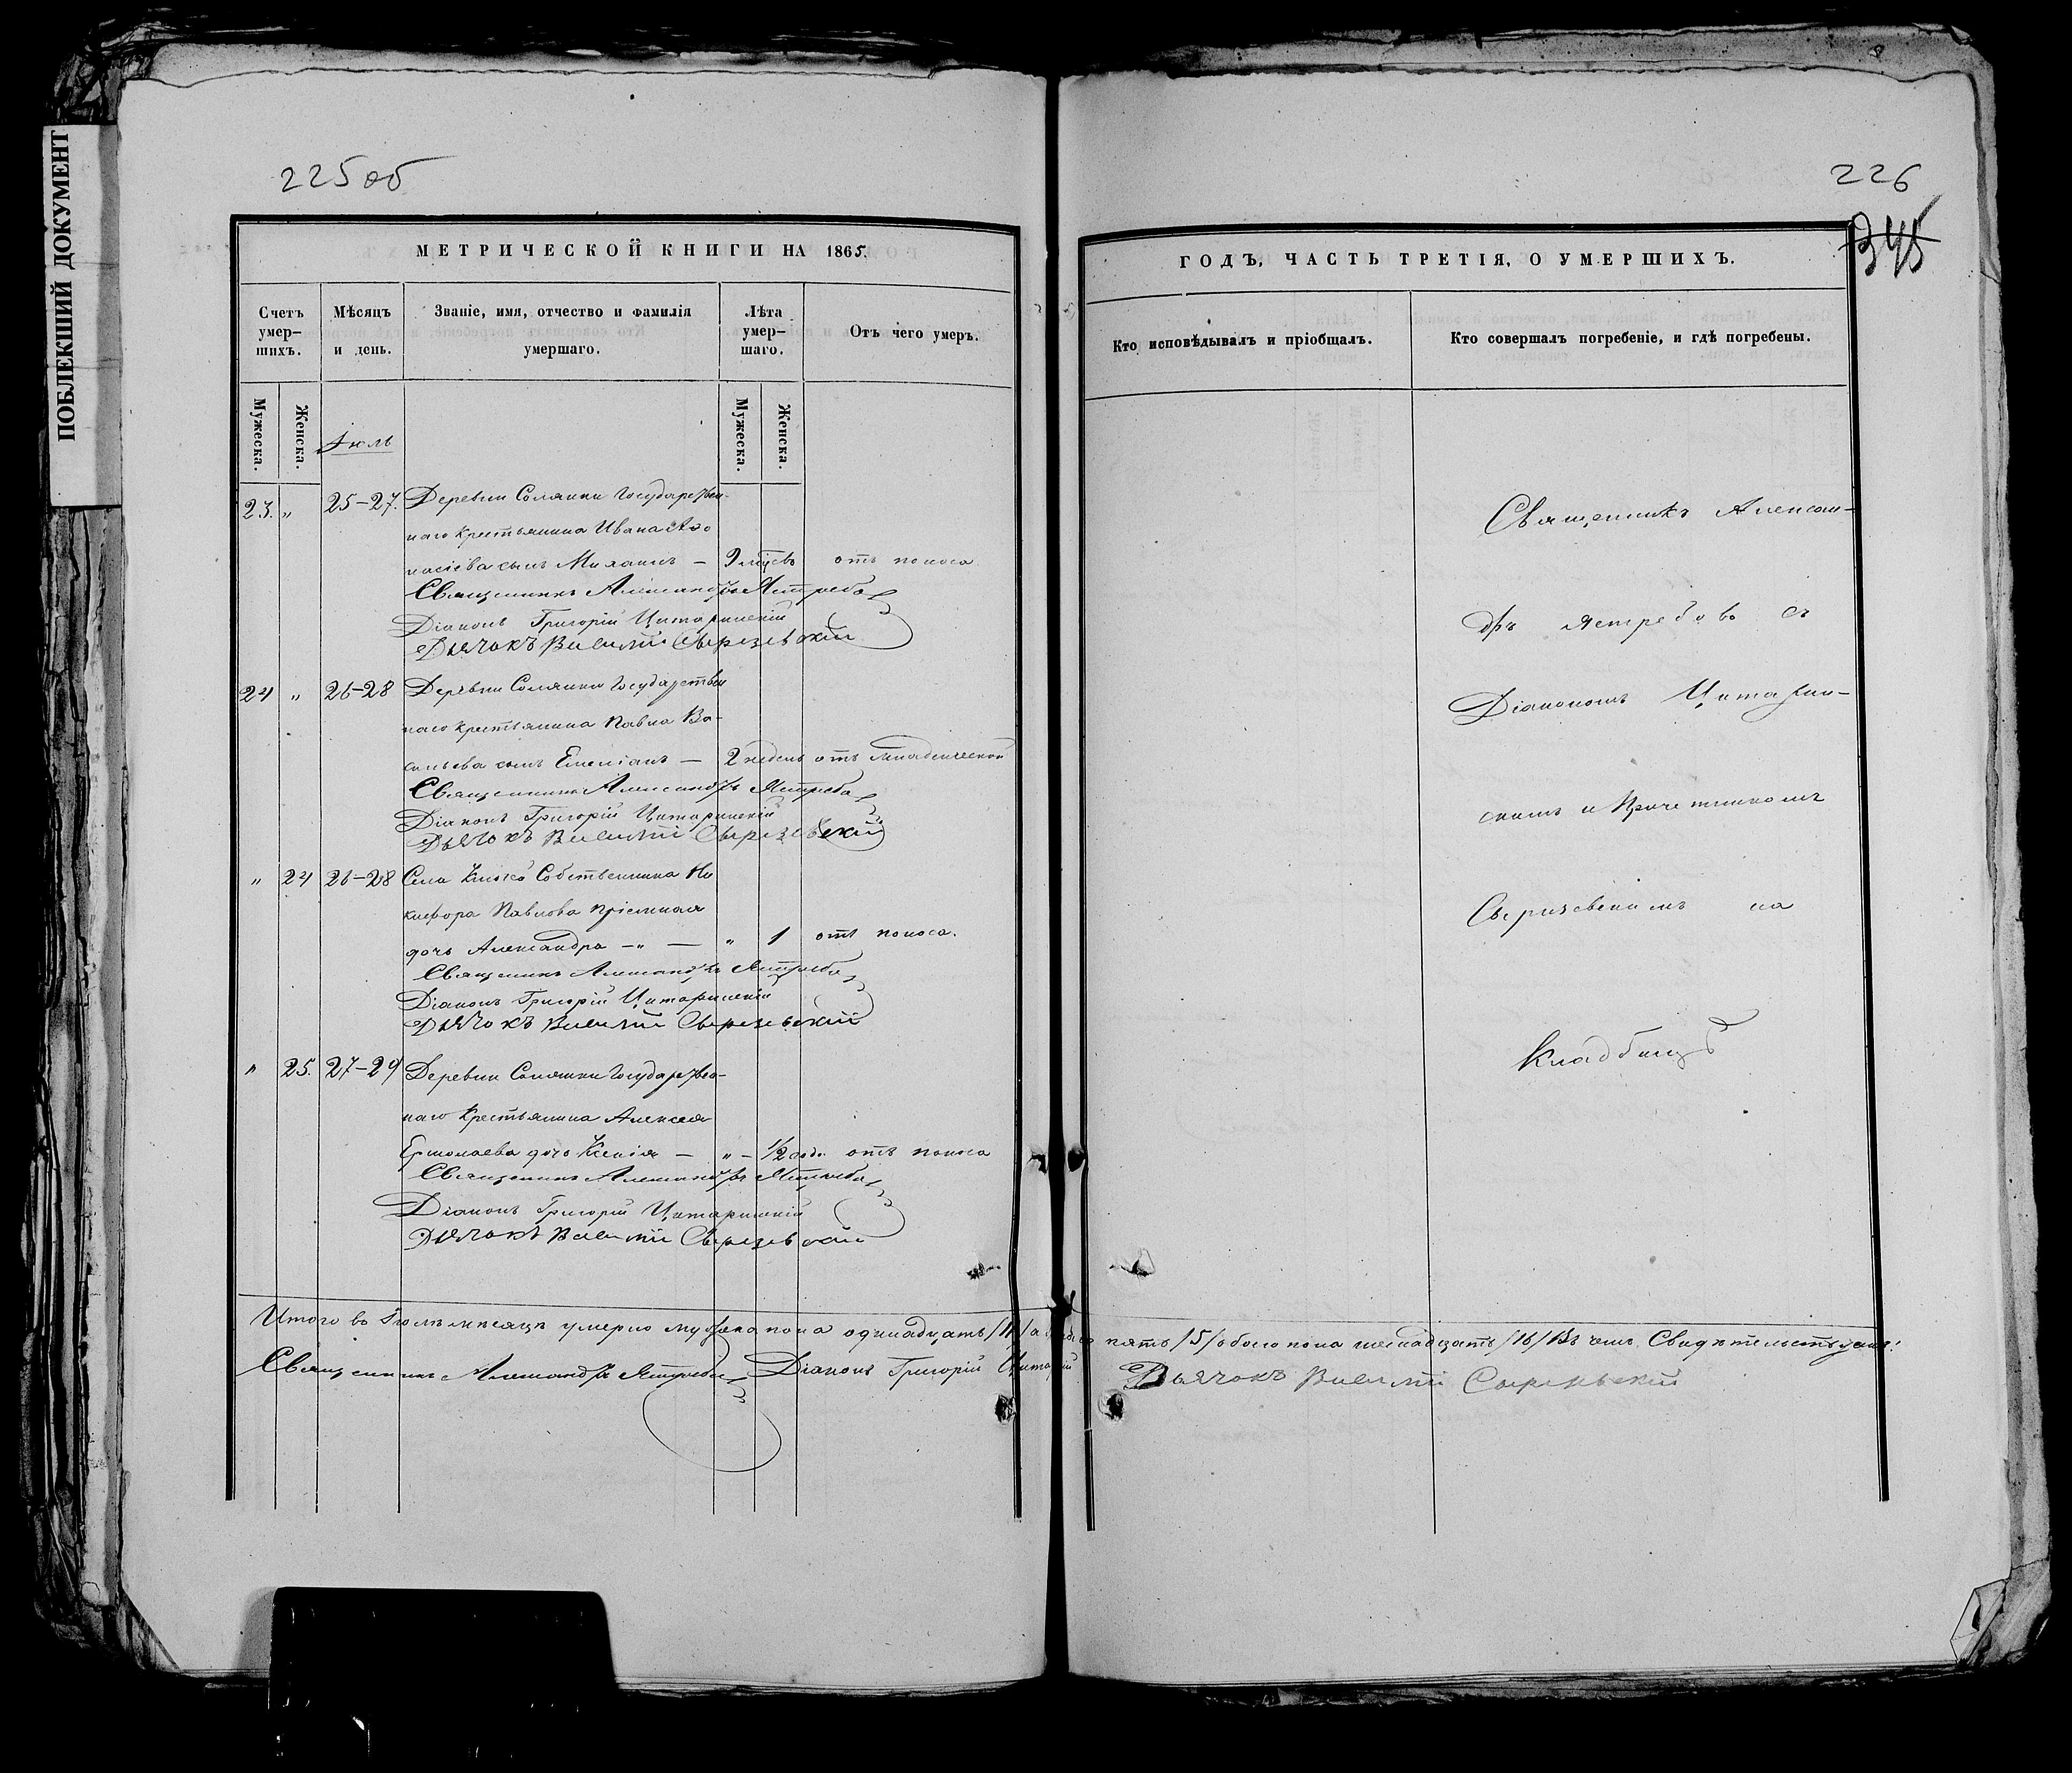 ПОБЛЕКШИЙ ДОКУМЕНТ
225 об
МЕТРИЧЕСКОЙ КНИГИ НА 1865.
Счетъ умер-шихъ.
Мѣсяцъ и день.
Званіе, имя, отчество и фамилія умершаго.
Лѣта умер-шаго.
Отъ чего умеръ.
Мужеска.
Женска.
Іюль
Мужеска.
Женска.
23. " 25-27. Деревни Солянки Государствен-
наго крестьянина Ивана Афо
насіева сынъ Михаилъ — 9 мцсвъ отъ поноса
Священникъ Александръ Ястребовъ
Діаконъ Григорій Цитаринскій
Дьячокъ Василій Сырезевскій
24 " 26-28 Деревни Солянки Государствен
наго крестьянина Павла Ва-
сильева сынъ Емеліанъ — 2 недель отъ младенческой
Священникъ Александръ Ястребовъ
Діаконъ Григорій Цитаринскій
Дьячокъ Василій Сырезевскій
" 24 26-28 Села Собственника Ни
кифора Павлова пріемная
дочь Александра — " — " 1 отъ поноса.
Священникъ Александръ Ястребовъ
Діаконъ Григорій Цитаринскій
Дьячокъ Василій Сырезевскій
" 25. 27-29 Деревни Солянки Государствен-
наго Крестьянина Алексея
Ермолаева дочь Ксенія — " - 1/2 года отъ поноса
Священникъ Александръ Ястребовъ
Діаконъ Григорій Цитаринскій
Дьячокъ Василій Сырезевскій
Итого во Іюлѣ месяцѣ умерло мужска пола одинадцать /11/ а пять /5/ обоего пола шеснадцать /16/ Въ чемъ Свидѣтельствуемъ:
Священникъ Александръ Ястребовъ Діаконъ Григорій Дьячокъ Василій Сырезевскій
226
345
ГОДЪ, ЧАСТЬ ТРЕТІЯ, О УМЕРШИХЪ.
Кто исповѣдывалъ и пріобщалъ.
Кто совершалъ погребеніе, и гдѣ погребены.
Священникъ Алексан-
дръ Ястребовъ съ
Діакономъ Цитарин-
скимъ и Причетникомъ
Сырезевскимъ на
Кладбищѣ